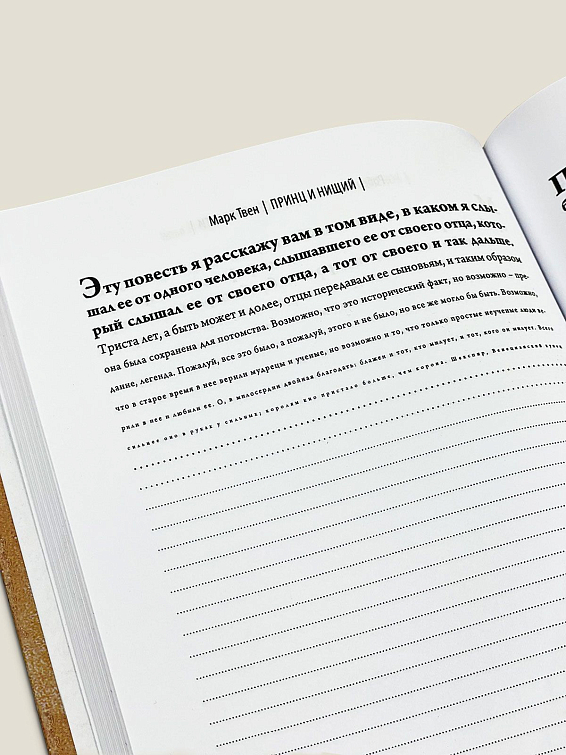 Марк Твен | ПРИНЦ И НИЩИЙ |
Эту повесть я расскажу вам в том виде, в каком я слы-
шал ее от одного человека, слышавшего ее от своего отца, кото-
рый слышал ее от своего отца, а тот от своего и так дальше.
Триста лет, а быть может и долее, отцы передавали ее сыновьям, и таким образом
она была сохранена для потомства. Возможно, что это исторический факт, но возможно – пре-
дание, легенда. Пожалуй, все это было, а пожалуй, этого и не было, но все же могло бы быть. Возможно,
что в старое время в нее верили мудрецы и ученые, но возможно и то, что только простые неученые люди ве-
рили в нее и любили ее. О, в милосердии двойная благодать: блажен и тот, кто милует, и тот, кого он милует. Всего
сильнее оно в руках у сильных; королям оно пристало больше, чем корона. Шекспир, Венецианский купец
П